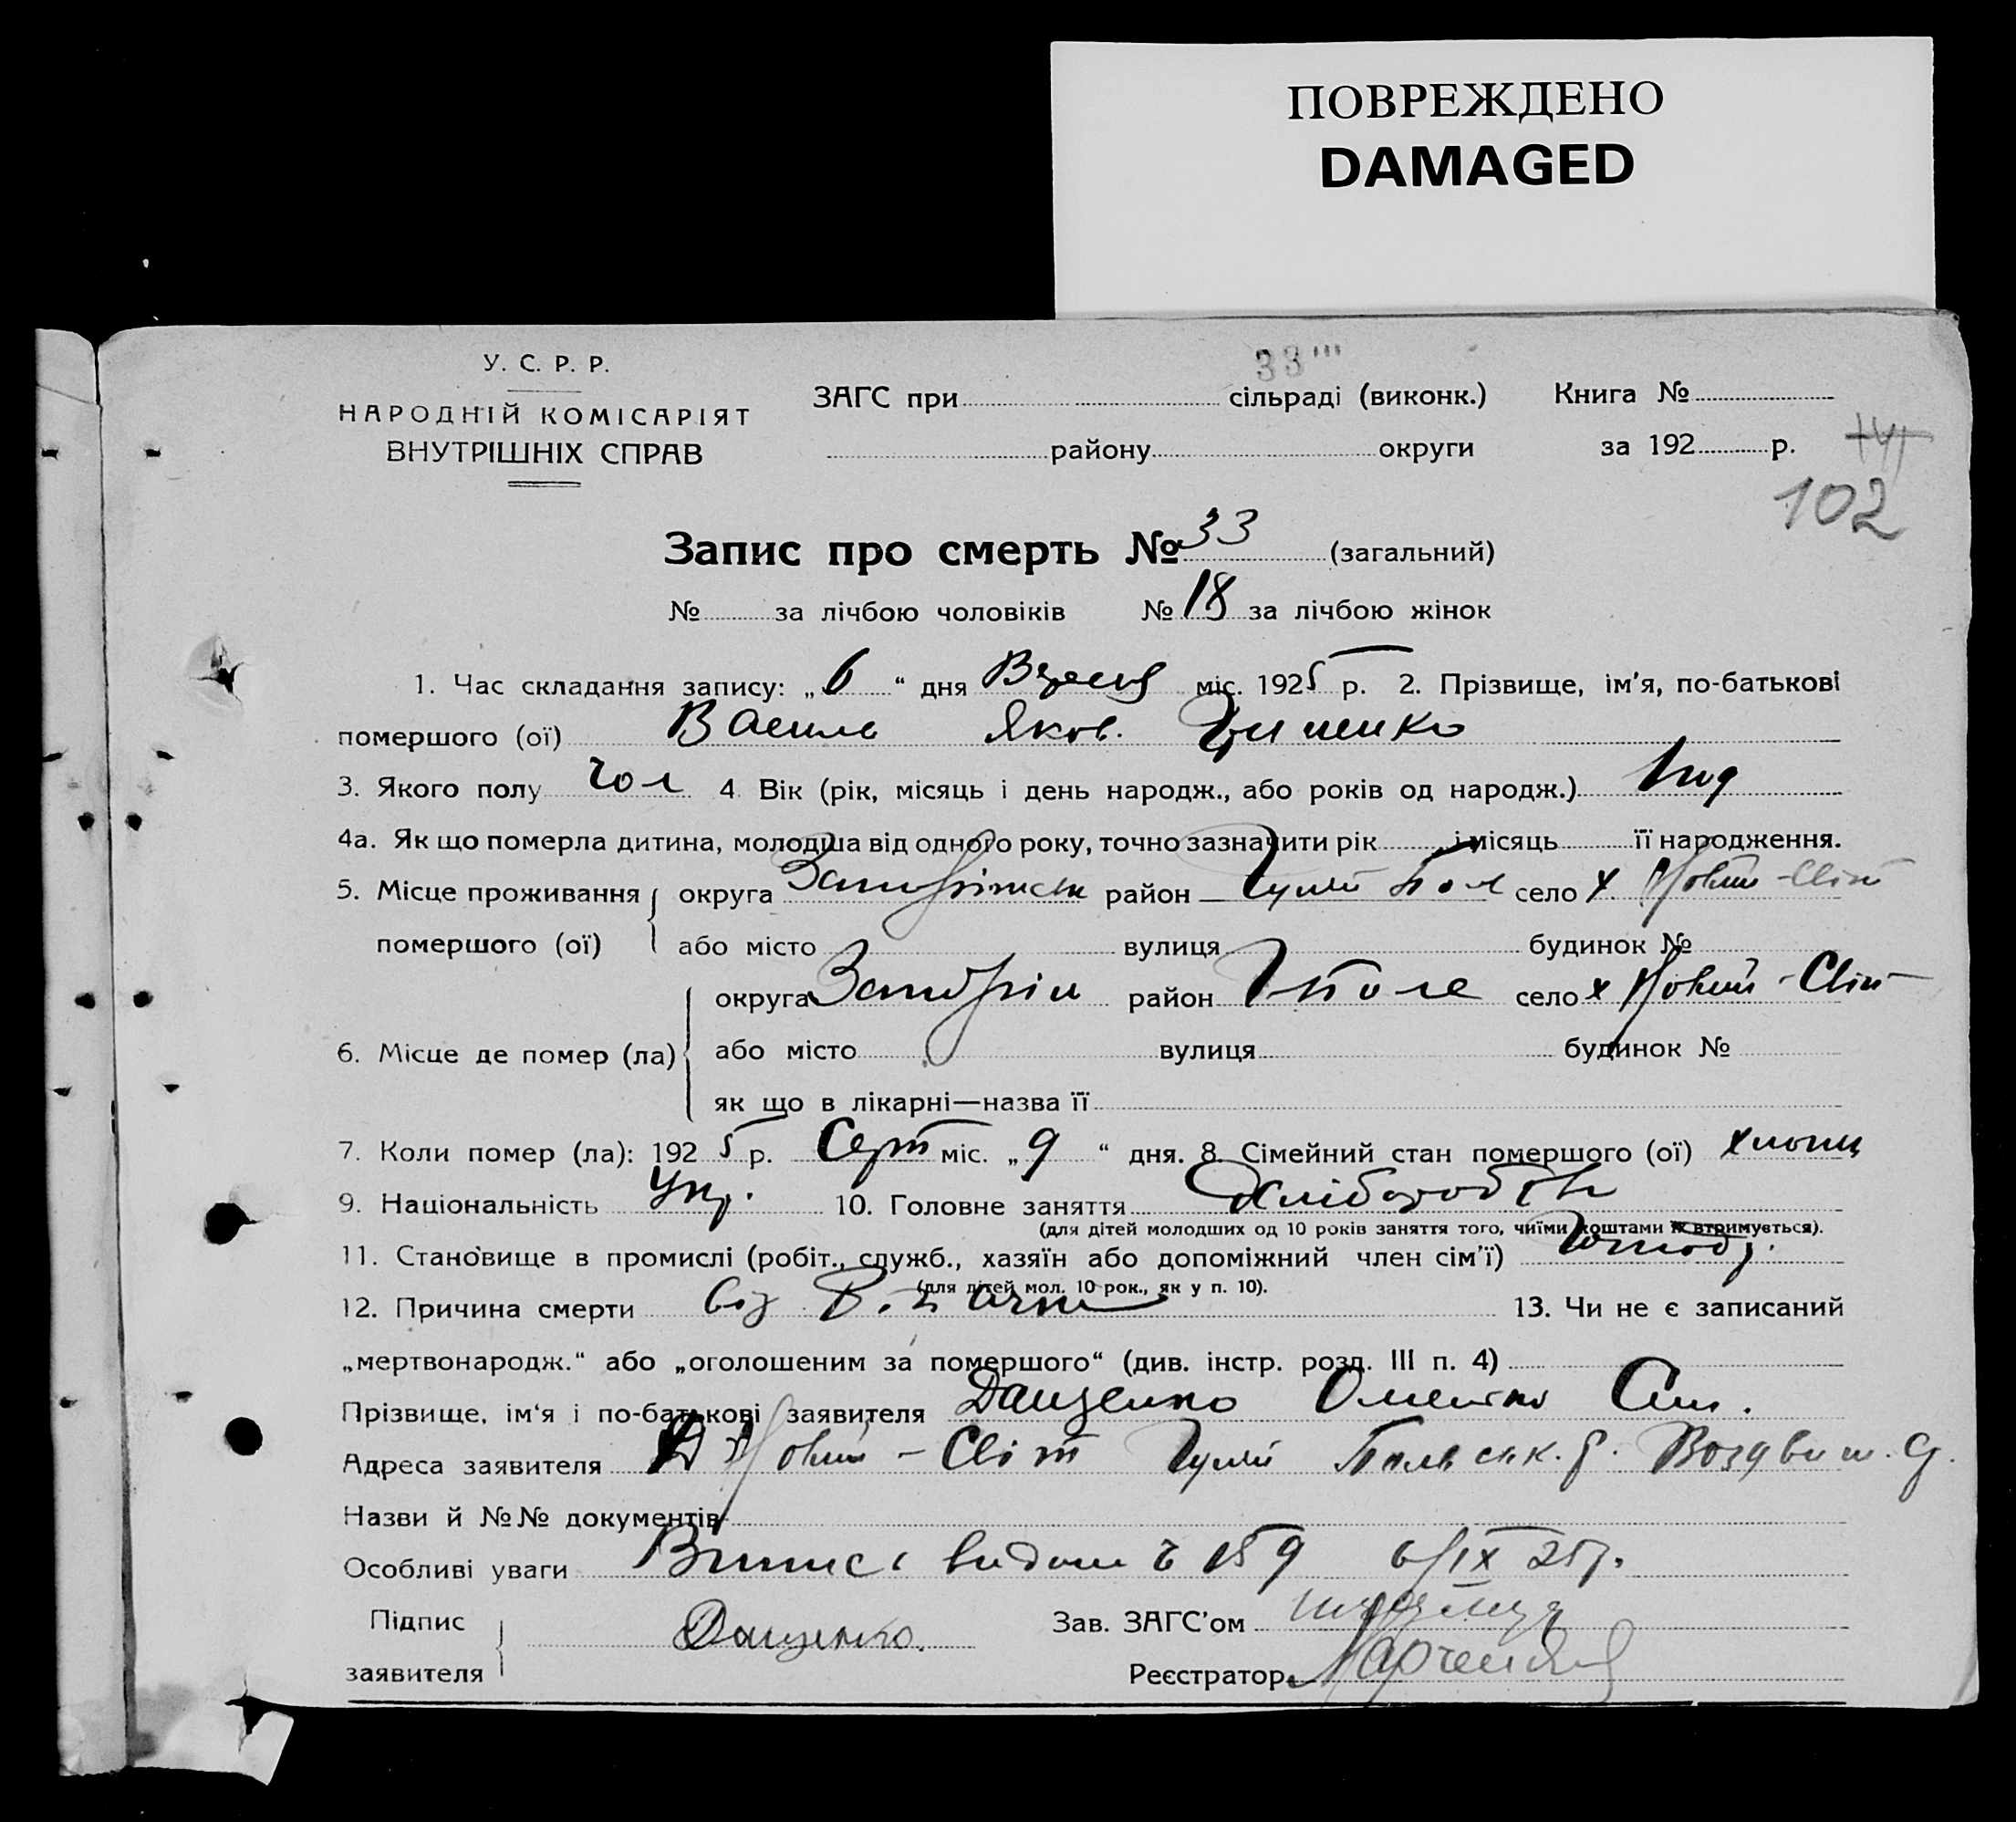 ПОВРЕЖДЕНО
DAMAGED
У. С. Р. Р.
НАРОДНІЙ КОМІСАРІЯТ
ВНУТРІШНІХ СПРАВ
33
ЗАГС при сільраді (виконк.) Книга №
району округи за 192 р.
102
Запис про смерть № 33 (загальний)
№ за лічбою чоловіків № 18 за лічбою жінок
1. Час складання запису: „6“ дня Вересня міс. 1925 р. 2. Прізвище, ім'я, по-батькові
помершого (ої) Василь Яков.
3. Якого полу чол 4. Вік (рік, місяць і день народж., або років од народж.) 1 год
4а. Як що померла дитина, молодша від одного року, точно зазначити рік і місяць її народження.
5. Місце проживання округа район Гуляй Пол село х. Новий-Світ
помершого (ої) або місто вулиця будинок №
округа район Г-Поле село х Новий-Світ
6. Місце де помер (ла) або місто вулиця будинок №
як що в лікарні—назва її
7. Коли помер (ла): 1925 р. Серт міс. „9“ дня. 8. Сімейний стан помершого (ої) хлопц
9. Національність Укр. 10. Головне заняття Хлібороб
(для дітей молодших од 10 років заняття того, чиїми коштами їх втримується).
11. Становище в промислі (робіт., служб., хазяїн або допоміжний член сім'ї)
(для дітей мол. 10 рок., як у п. 10).
12. Причина смерти від 13. Чи не є записаний
„мертвонародж.“ або „оголошеним за помершого“ (див. інстр. розд. III п. 4)
Прізвище, ім'я і по-батькові заявителя Дащенко
Адреса заявителя Новий-Світ Гуляй Польськ. р. Воздвиж. С.
Назви й №№ документів
Особливі уваги Випис видан 159 6/IX 25р.
Підпис Дащенко. Зав. ЗАГС'ом
заявителя Реєстратор